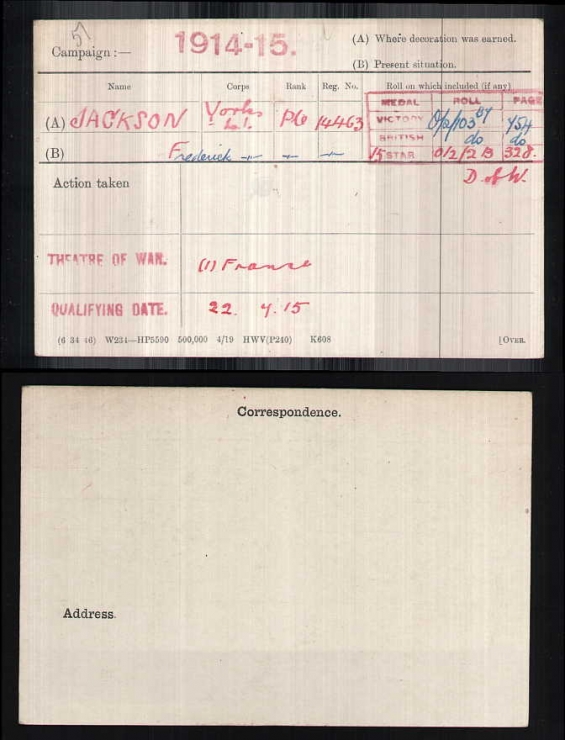 Campaign :— 1914-15. (A) Where decoration was earned.
(B) Present situation.
Name Corps Rank Reg. No. Roll on which included (if any)
MEDAL ROLL PAGE
(A) JACKSON Yorks L.I. Pte 14463
VICTORY 454
BRITISH do do
(B) Frederick — " — — " — — " —
15 STAR 0/2/2B 328.
Action taken D of W.
THEATRE OF WAR. (1) France
QUALIFYING DATE. 22. 4. 15
(6 34 46) W234—HP5590 500,000 4/19 HWV(P240) K608 [OVER.
Correspondence.
Address.